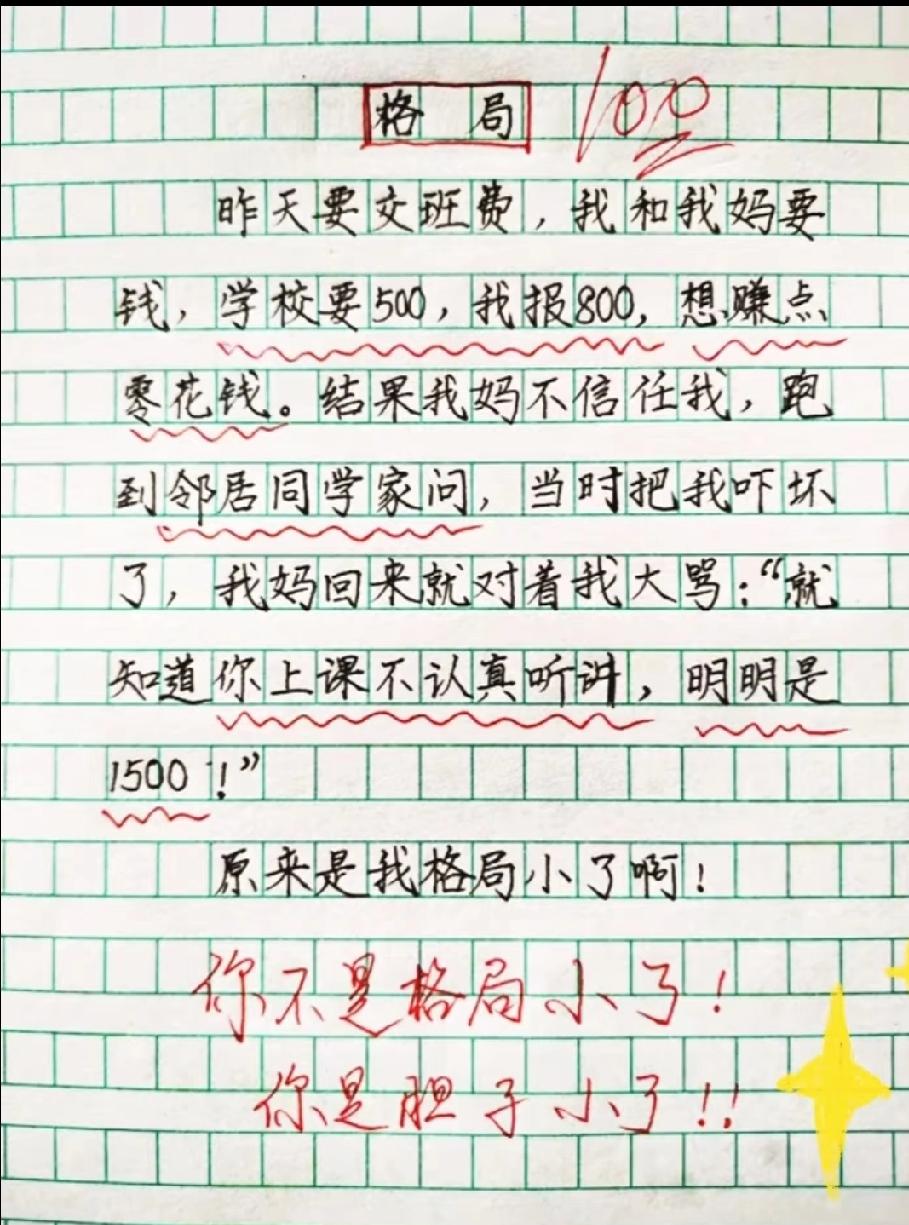 格局 100
昨天要交班费，我和我妈要
钱，学校要500，我报800，想赚点
零花钱。结果我妈不信任我，跑
到邻居同学家问，当时把我吓坏
了，我妈回来就对着我大骂：“就
知道你上课不认真听讲，明明是
1500！”
原来是我格局小了啊！
你不是格局小了！
你是胆子小了！！